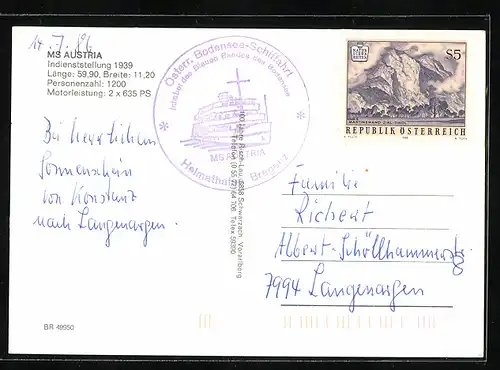 14.7.86
MS AUSTRIA
Indienststellung 1939
Länge: 59,90, Breite: 11,20
Personenzahl: 1200
Motorleistung: 2 x 635 PS
Bei herrlichem
Sonnenschein
von Konstanz
nach Langenargen.
BR 49950
Österr. Bodensee-Schiffahrt
Inhaber des Blauen Bandes des Bodensees
MS AUSTRIA
Heimathafen Bregenz
Risch-Lau, 6858 Schwarzach, Vorarlberg
Telefon (0 55 72) 64 706, Telex 59390
S5
MARTINSWAND-ZIRL-TIROL
REPUBLIK ÖSTERREICH
Familie
Richert
Albert-Schöllhammerstr.
7994 Langenargen